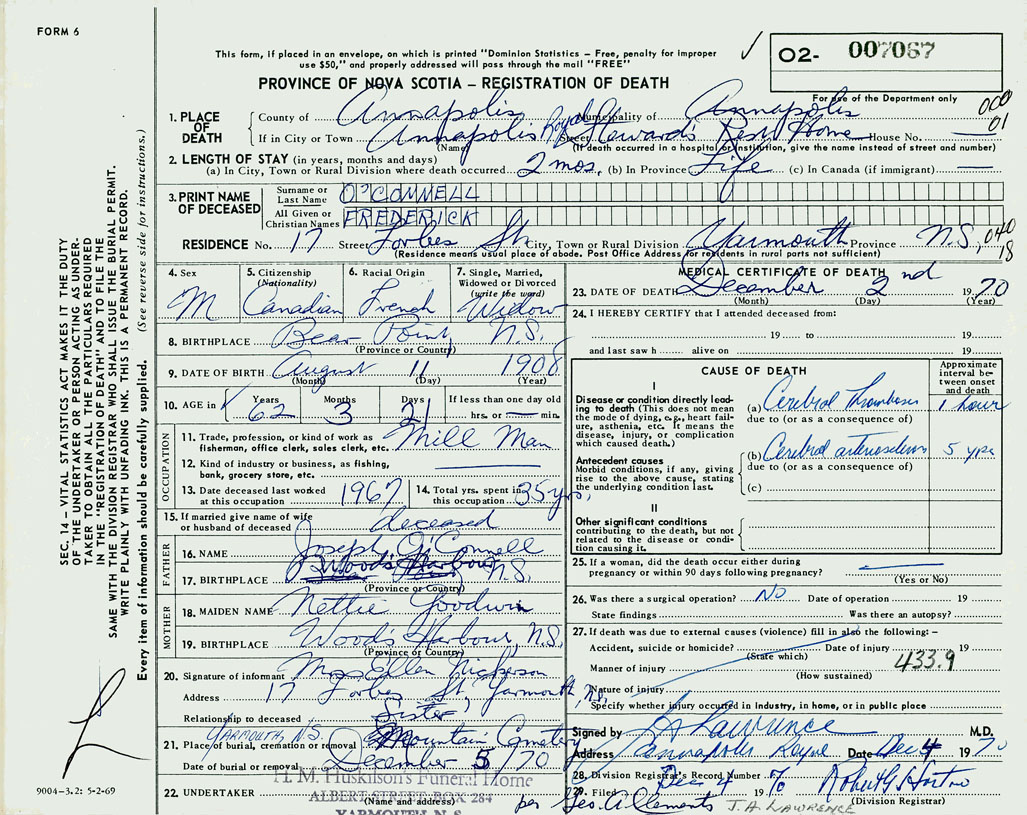 FORM 6
This form, if placed in an envelope, on which is printed "Dominion Statistics – Free, penalty for improper
use $50," and properly addressed will pass through the mail "FREE"
O2- 007067
PROVINCE OF NOVA SCOTIA – REGISTRATION OF DEATH
For use of the Department only
000
01
1. PLACE OF DEATH
County of Annapolis Municipality of Annapolis
If in City or Town Annapolis Royal Street Howards Rest Home House No. —
(Name) (If death occurred in a hospital or institution, give the name instead of street and number)
2. LENGTH OF STAY (in years, months and days)
(a) In City, Town or Rural Division where death occurred 2 mos. (b) In Province Life (c) In Canada (if immigrant) —
3. PRINT NAME OF DECEASED
Surname or Last Name O'CONNELL
All Given or Christian Names FREDERICK
RESIDENCE No. 17 Street Forbes St City, Town or Rural Division Yarmouth Province N.S. 040
18
(Residence means usual place of abode. Post Office Address for residents in rural parts not sufficient)
4. Sex M
5. Citizenship (Nationality) Canadian
6. Racial Origin French
7. Single, Married, Widowed or Divorced (write the word) Widow
8. BIRTHPLACE Bear Point, N.S.
(Province or Country)
9. DATE OF BIRTH August 11 1908
(Month) (Day) (Year)
10. AGE in Years 62 Months 3 Days 21 If less than one day old hrs. or — min.
OCCUPATION
11. Trade, profession, or kind of work as fisherman, office clerk, sales clerk, etc. Mill Man
12. Kind of industry or business, as fishing, bank, grocery store, etc. —
13. Date deceased last worked at this occupation 1967
14. Total yrs. spent in this occupation 35 yrs.
15. If married give name of wife or husband of deceased deceased
FATHER
16. NAME Joseph O'Connell
17. BIRTHPLACE Woods Harbour N.S.
(Province or Country)
MOTHER
18. MAIDEN NAME Nettie Goodwin
19. BIRTHPLACE Woods Harbour, N.S.
(Province or Country)
20. Signature of informant Mrs Ellen Nickerson
Address 17 Forbes St, Yarmouth, N.S.
Relationship to deceased Sister
YARMOUTH, N.S.
21. Place of burial, cremation or removal Mountain Cemetery
Date of burial or removal December 5/70
22. UNDERTAKER H. M. Huskilson's Funeral Home
ALBERT STREET BOX 284
(Name and address)
YARMOUTH, N.S.
per Geo. A Clements
MEDICAL CERTIFICATE OF DEATH
23. DATE OF DEATH December 2nd 1970
(Month) (Day) (Year)
24. I HEREBY CERTIFY that I attended deceased from:
19 to 19
and last saw h alive on 19
CAUSE OF DEATH
Approximate interval between onset and death
I
Disease or condition directly leading to death (This does not mean the mode of dying, e.g., heart failure, asthenia, etc. It means the disease, injury, or complication which caused death.)
(a) Cerebral Thrombosis 1 hour
due to (or as a consequence of)
Antecedent causes
Morbid conditions, if any, giving rise to the above cause, stating the underlying condition last.
(b) Cerebral arteriosclerosis 5 yrs
due to (or as a consequence of)
(c)
II
Other significant conditions contributing to the death, but not related to the disease or condition causing it.
25. If a woman, did the death occur either during pregnancy or within 90 days following pregnancy? —
(Yes or No)
26. Was there a surgical operation? NO Date of operation 19
State findings Was there an autopsy?
27. If death was due to external causes (violence) fill in also the following: –
Accident, suicide or homicide? Date of injury 19
(State which)
433.9
Manner of injury
(How sustained)
Nature of injury
Specify whether injury occurred in industry, in home, or in public place
Signed by Lawrence M.D.
Address Annapolis Royal Date Dec 4 1970
28. Division Registrar's Record Number
29. Filed Dec 4 1970
(Division Registrar)
J. A. LAWRENCE
SEC. 14 – VITAL STATISTICS ACT MAKES IT THE DUTY
OF THE UNDERTAKER OR PERSON ACTING AS UNDER-
TAKER TO OBTAIN ALL THE PARTICULARS REQUIRED
IN THE "REGISTRATION OF DEATH" AND TO FILE THE
SAME WITH THE DIVISION REGISTRAR WHO SHALL ISSUE THE BURIAL PERMIT.
WRITE PLAINLY WITH UNFADING INK. THIS IS A PERMANENT RECORD.
Every item of information should be carefully supplied. (See reverse side for instructions.)
9004-3.2: 5-2-69